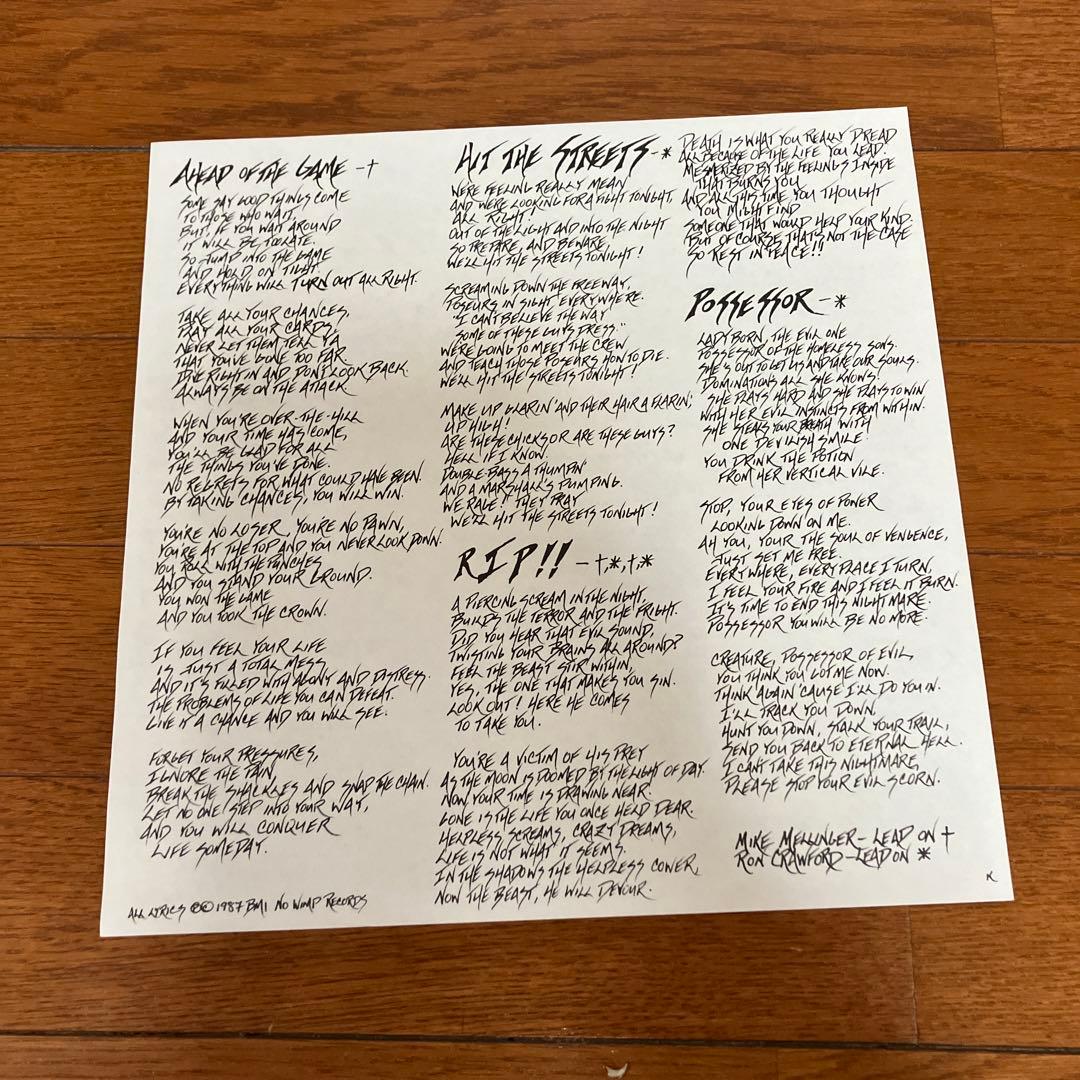 AHEAD OF THE GAME -†
SOME SAY GOOD THINGS COME
TO THOSE WHO WAIT.
BUT, IF YOU WAIT AROUND
IT WILL BE TOO LATE.
SO JUMP INTO THE GAME
AND HOLD ON TIGHT.
EVERYTHING WILL TURN OUT ALL RIGHT.
TAKE ALL YOUR CHANCES,
PLAY ALL YOUR CARDS,
NEVER LET THEM TELL YA
THAT YOU'VE GONE TOO FAR.
DIVE RIGHT IN AND DON'T LOOK BACK.
ALWAYS BE ON THE ATTACK.
WHEN YOU'RE OVER-THE-HILL
AND YOUR TIME HAS COME,
YOU'LL BE GLAD FOR ALL
THE THINGS YOU'VE DONE.
NO REGRETS FOR WHAT COULD HAVE BEEN.
BY TAKING CHANCES, YOU WILL WIN.
YOU'RE NO LOSER, YOU'RE NO PAWN,
YOU'RE AT THE TOP AND YOU NEVER LOOK DOWN.
YOU ROLL WITH THE PUNCHES
AND YOU STAND YOUR GROUND.
YOU WON THE GAME
AND YOU TOOK THE CROWN.
IF YOU FEEL YOUR LIFE
IS JUST A TOTAL MESS,
AND IT'S FILLED WITH AGONY AND DISTRESS.
THE PROBLEMS OF LIFE YOU CAN DEFEAT.
GIVE IT A CHANCE AND YOU WILL SEE.
FORGET YOUR PRESSURES,
IGNORE THE PAIN,
BREAK THE SHACKLES AND SNAP THE CHAIN.
LET NO ONE STEP INTO YOUR WAY,
AND YOU WILL CONQUER
LIFE SOMEDAY.
ALL LYRICS ℗© 1987 BMI NO WIMP RECORDS
HIT THE STREETS-*
WERE FEELING REALLY MEAN
AND WERE LOOKING FOR A FIGHT TONIGHT,
ALL RIGHT!
OUT OF THE LIGHT AND INTO THE NIGHT
SO PREPARE, AND BEWARE
WE'LL HIT THE STREETS TONIGHT!
SCREAMING DOWN THE FREEWAY,
POSEURS IN SIGHT EVERYWHERE.
"I CAN'T BELIEVE THE WAY
SOME OF THESE GUYS DRESS."
WE'RE GOING TO MEET THE CREW
AND TEACH THOSE POSEARS HOW TO DIE.
WE'LL HIT THE STREETS TONIGHT!
MAKE UP GLARIN' AND THEIR HAIR A FLARIN'
UP HIGH!
ARE THESE CHICKS OR ARE THESE GUYS?
HELL IF I KNOW.
DOUBLE-BASS A THUMPIN'
AND A MARSHALL'S PUMPING.
WE RAGE! THEY PRAY
WE'LL HIT THE STREETS TONIGHT!
RIP!! -†,*,†,*
A PIERCING SCREAM IN THE NIGHT,
BUILDS THE TERROR AND THE FRIGHT.
DID YOU HEAR THAT EVIL SOUND,
TWISTING YOUR BRAINS ALL AROUND?
FEEL THE BEAST STIR WITHIN,
YES, THE ONE THAT MAKES YOU SIN.
LOOK OUT! HERE HE COMES
TO TAKE YOU.
YOU'RE A VICTIM OF HIS PREY
AS THE MOON IS DOOMED BY THE LIGHT OF DAY.
NOW YOUR TIME IS DRAWING NEAR.
GONE IS THE LIFE YOU ONCE HELD DEAR.
HELPLESS SCREAMS, CRAZY DREAMS,
LIFE IS NOT WHAT IT SEEMS.
IN THE SHADOWS THE HELPLESS COWER,
NOW THE BEAST, HE WILL DEVOUR.
DEATH IS WHAT YOU REALLY DREAD
ALL BECAUSE OF THE LIFE YOU LEAD.
MESMERIZED BY THE FEELINGS INSIDE
THAT BURNS YOU
AND ALL THIS TIME, YOU THOUGHT
YOU MIGHT FIND
SOMEONE THAT WOULD HELP YOUR KIND.
BUT OF COURSE THATS NOT THE CASE
SO REST IN PEACE!!
POSSESSOR -*
LADY BORN, THE EVIL ONE
POSSESSOR OF THE HOMELESS SONS.
SHE'S OUT TO GET US AND TAKE OUR SOULS.
DOMINATIONS ALL SHE KNOWS!
SHE PLAYS HARD AND SHE PLAYS TO WIN
WITH HER EVIL INSTINCTS FROM WITHIN.
SHE STEALS YOUR BREATH WITH
ONE DEVILISH SMILE.
YOU DRINK THE POTION
FROM HER VERTICAL VILE.
STOP, YOUR EYES OF POWER
LOOKING DOWN ON ME.
AH YOU, YOUR THE SOUL OF VENGENCE,
JUST SET ME FREE.
EVERYWHERE, EVERY PLACE I TURN,
I FEEL YOUR FIRE AND I FEEL IT BURN.
IT'S TIME TO END THIS NIGHTMARE.
POSSESSOR YOU WILL BE NO MORE.
CREATURE, POSSESSOR OF EVIL,
YOU THINK YOU GOT ME NOW.
THINK AGAIN 'CAUSE I'LL DO YOU IN.
I'LL TRACK YOU DOWN.
HUNT YOU DOWN, STALK YOUR TRAIL,
SEND YOU BACK TO ETERNAL HELL.
I CANT TAKE THIS NIGHTMARE,
PLEASE STOP YOUR EVIL SCORN.
MIKE MELLINGER - LEAD ON †
RON CRAWFORD - LEAD ON *
K